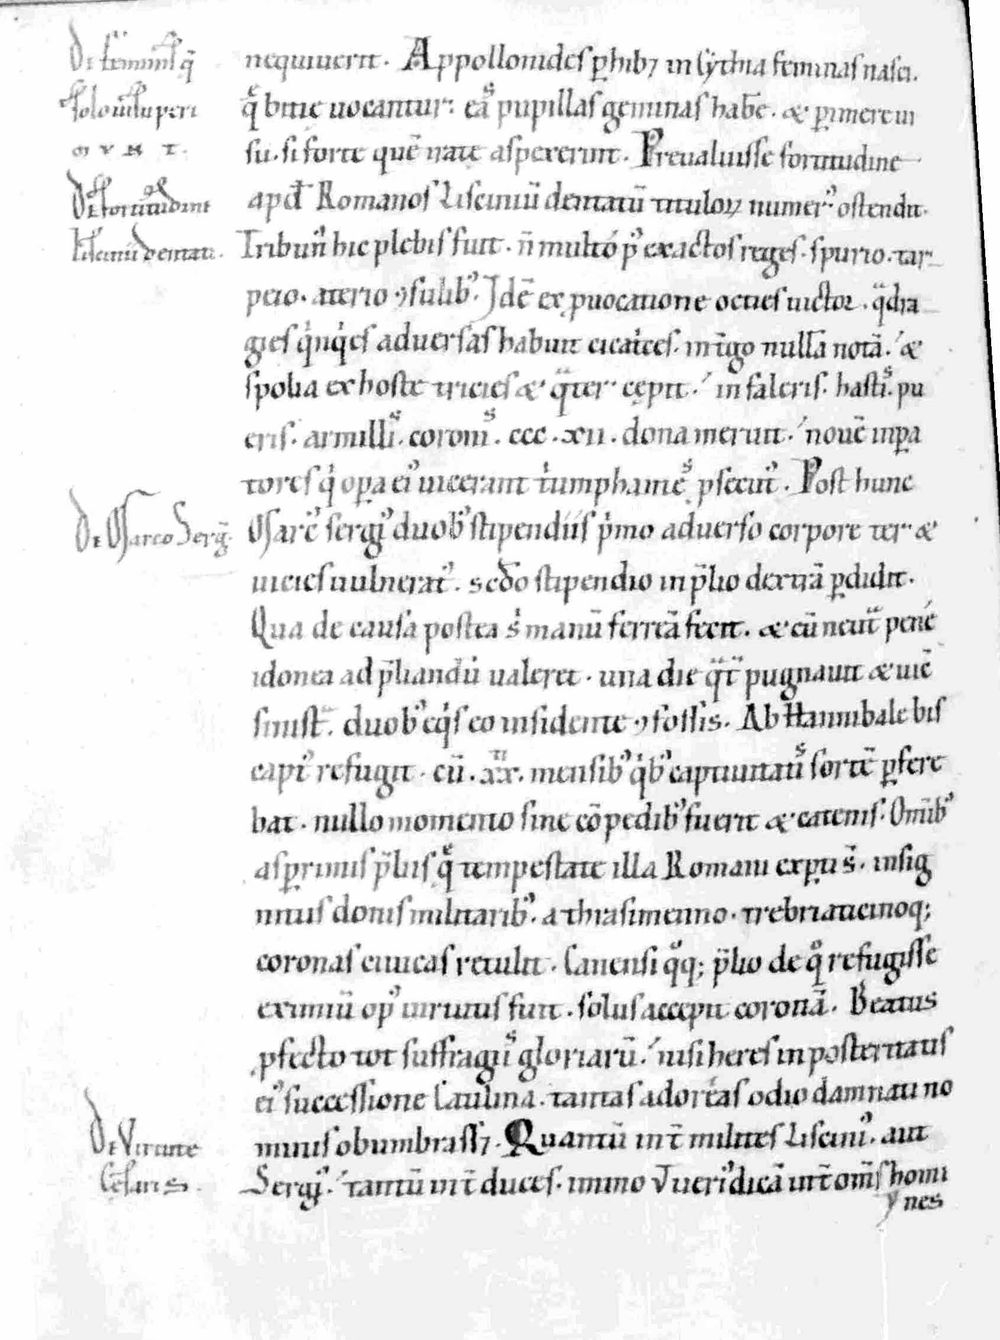 De feminis q̄
solo uisu peri
munt.
De fortitudine
Lisciniі dentati.
nequiuerit. Appollonides ꝑhibꝫ in Scẏthia feminas nasci.
q̄ bitie uocantur: eas pupillas geminas habē. & ꝑimere ui
su. si forte quē irate aspexerint. Preualuisse fortitudine
apđ Romanos Lisciniū dentatū titulorꝫ numerꝰ ostendit.
Tribunꝰ hic plebis fuit. n̄ multo p᷒ exactos reges. spurio. tar
peio. aterio ꝯsulibꝰ. Idē ex ꝓuocatione octies uictor. q̄dra
gies q̍nq̍es aduersas habuit cicat̍ces. in t̄go nullā notā. &
spolia ex hoste tricies & q̄ter cepit. in faleris. hastis. pu
eris. armillis. coronis. ccc. xii. dona meruit. nouē inꝑa
tores q̍ oꝑa eiꝰ uicerant t̍umphantes ꝓsecutꝰ. Post hunc
De Marco Serḡ.
Marcꝰ sergiꝰ duobꝰ stipendiis p̍mo aduerso corpore ter &
uicies uulneratꝰ. scđo stipendio in p̄lio dextrā ꝑdidit.
Qua de causa postea s̍ manū ferreā fecit. & cū neut̄ pene
idonea ad p̄liandū ualeret. una die q̄t̄ pugnauit & uic̄
sinist̄. duobꝰ eq̍s eo insidente ꝯfossis. Ab Hannibale bis
captꝰ refugit. cū. xx. mensibꝰ q̍bꝰ captiuitatis sortē ꝑfere
bat. nullo momento sine cōpedibꝰ fuerit & catenis. Omībꝰ
asꝑrimis p̄liis q̄ tempestate illa Romani exꝑti s̄. insig
nitus donis militaribꝰ. a thrasimenno. trebriaticinoq;
coronas ciuicas retulit. Canensi qͦq; p̄lio de qͦ refugisse
eximiū opꝰ uirtutis fuit. solus accepit coronā. Beatus
ꝓfecto tot suffragiis gloriarū. nisi heres in posteritatis
eiꝰ successione Catilina. tantas adoreas odio damnati no
minis obumbrassꝫ. Quantū int̄ milites Lisciniꝰ. aut
De Virtute
Cesaris.
Sergiꝰ. tantū int̄ duces. immo ut ueriꝰ dicā int̄ om̄s homi
nes